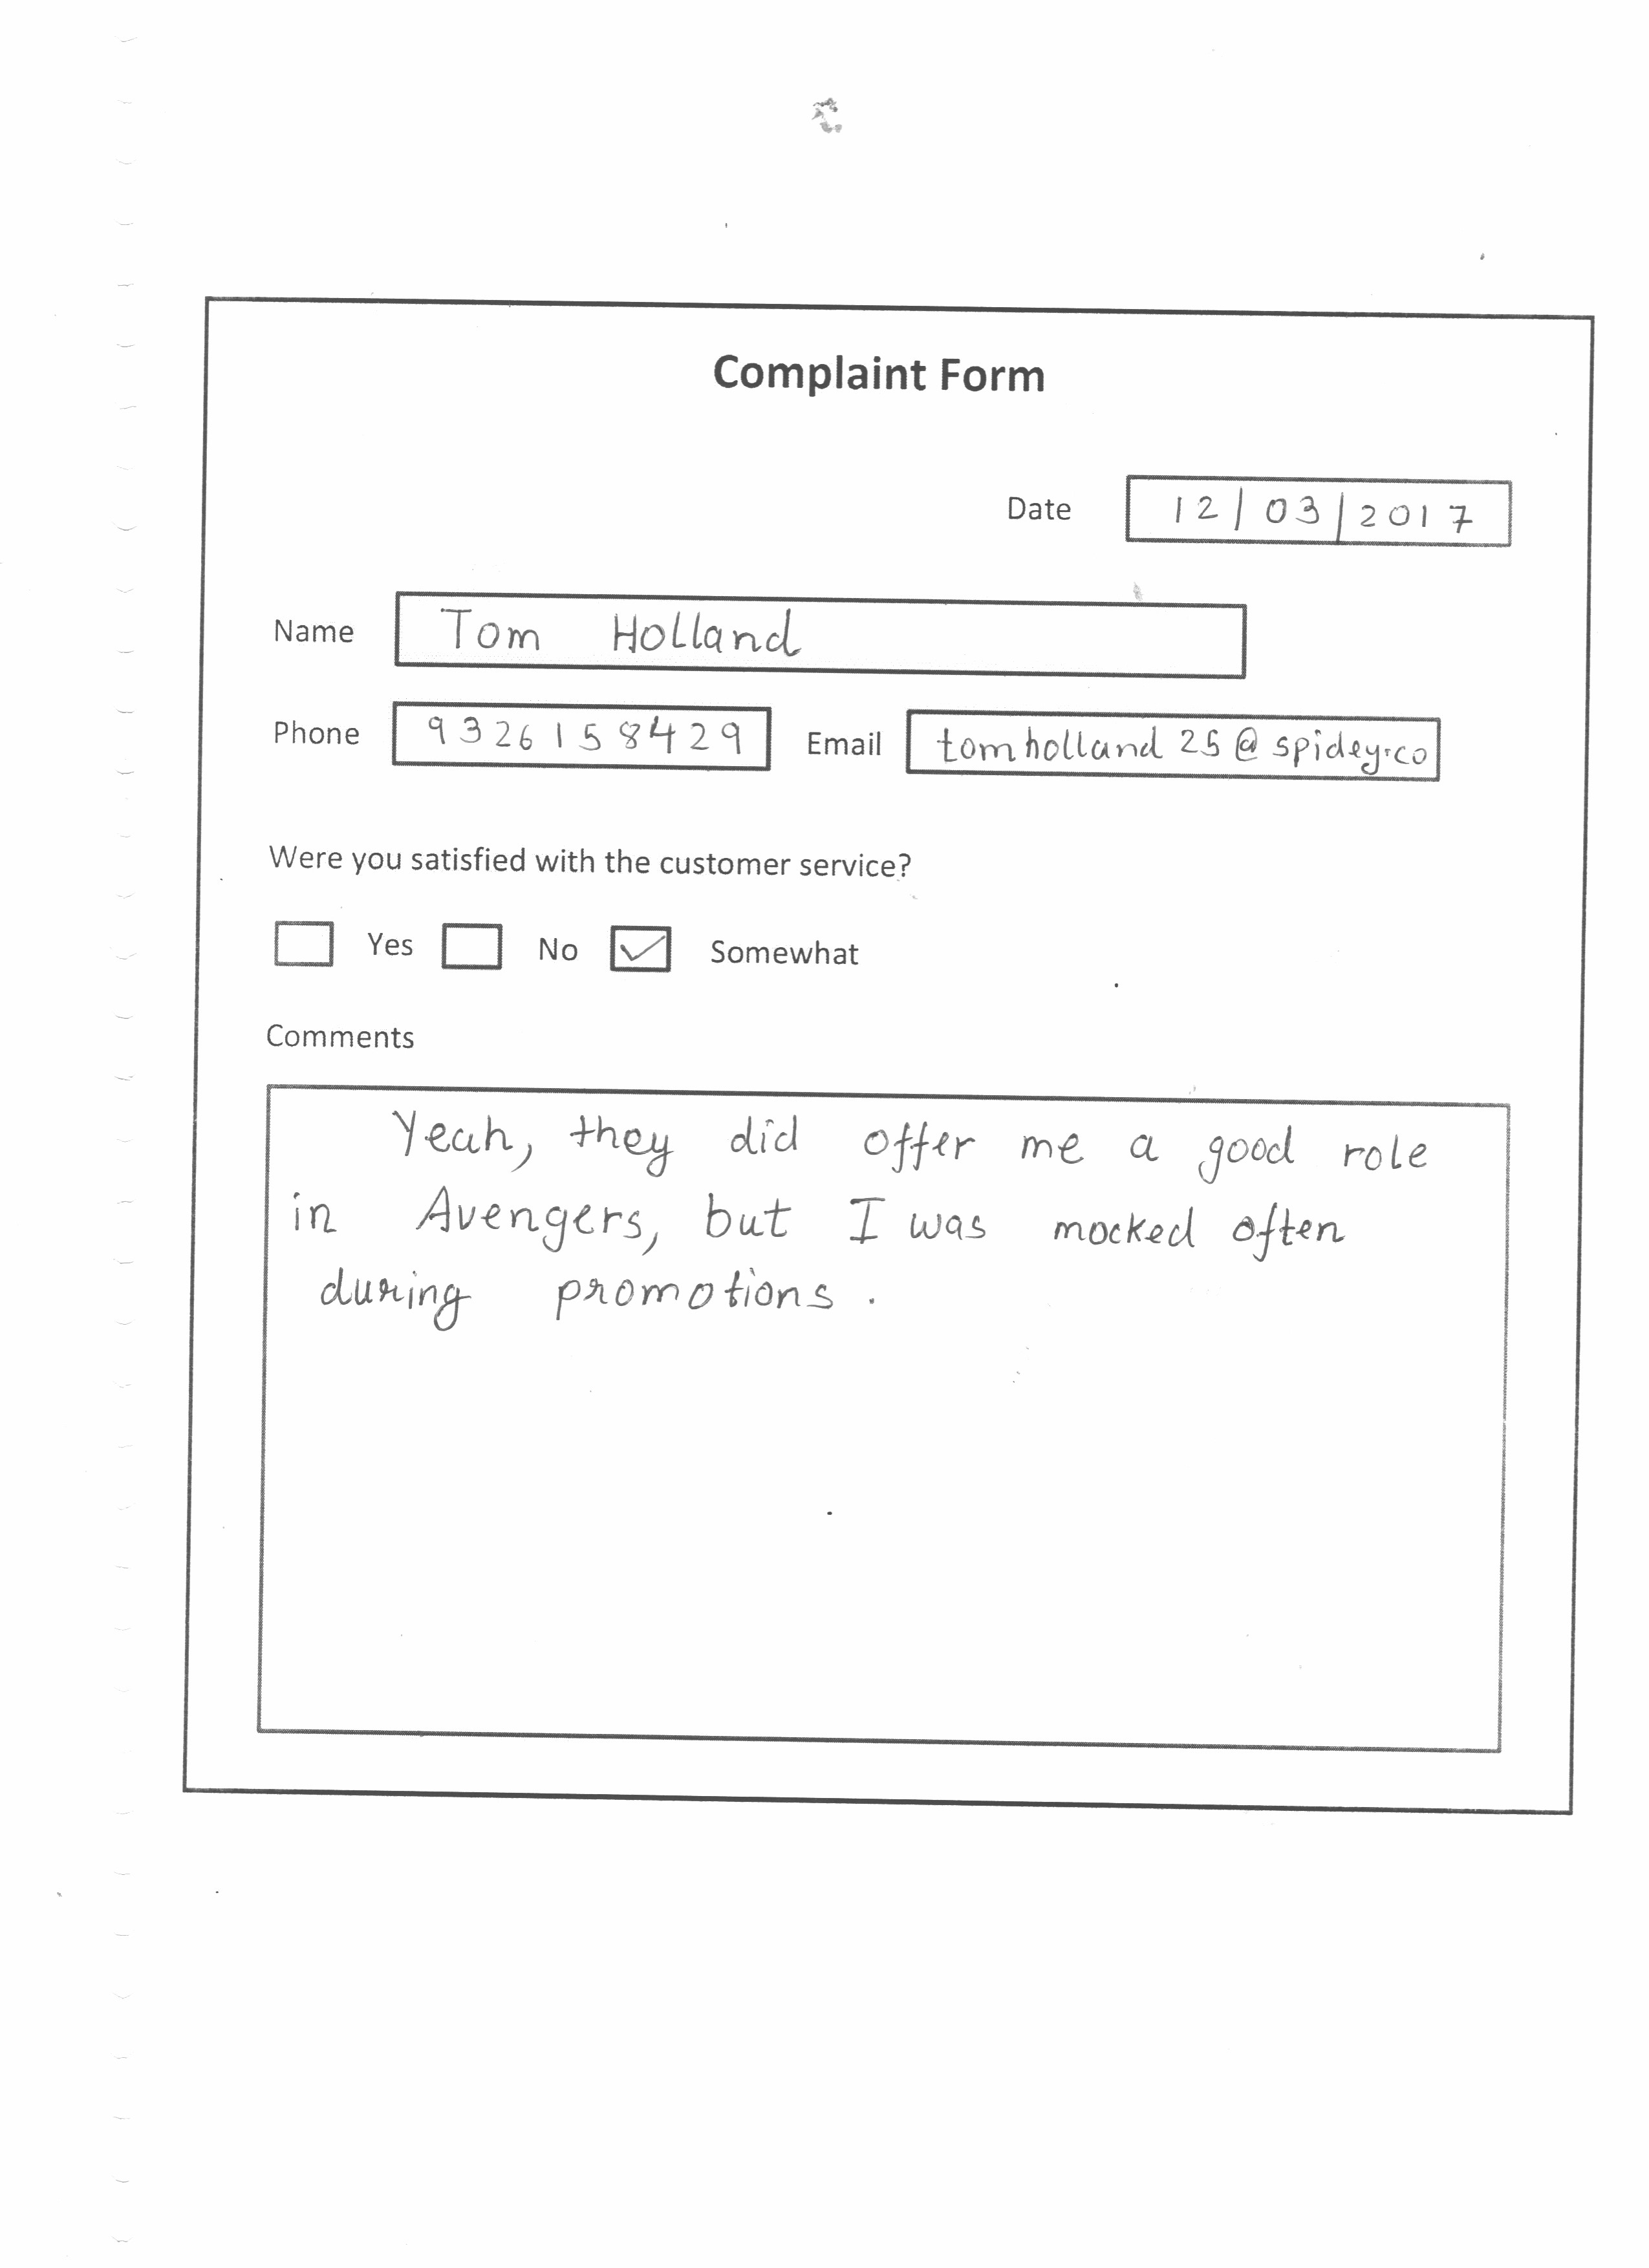 Complaint Form
Date 12/03/2017
Name Tom Holland
Phone 9326158429 Email tomholland25@spidey.co
Were you satisfied with the customer service?
Yes No Somewhat
Comments
Yeah, they did offer me a good role
in Avengers, but I was mocked often
during promotions.